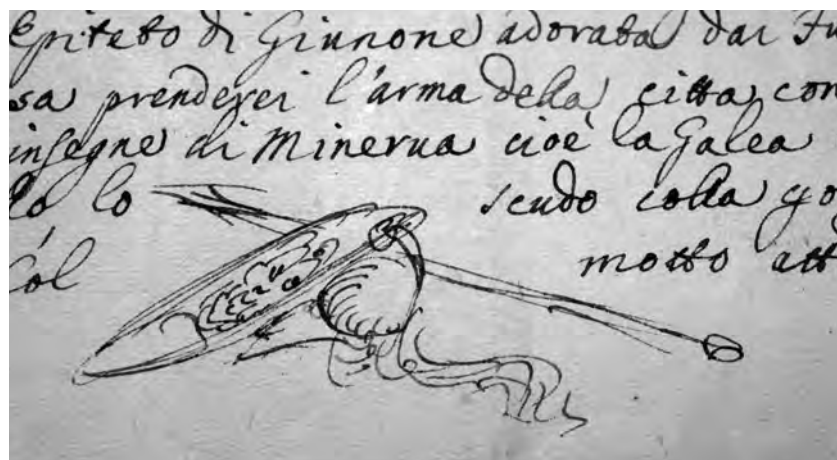 Epiteto di Giunone adorata dai Fu
sa prenderei l'arma della citta con
insegne di Minerua cioè la Galea
lo scudo colla go
col motto att